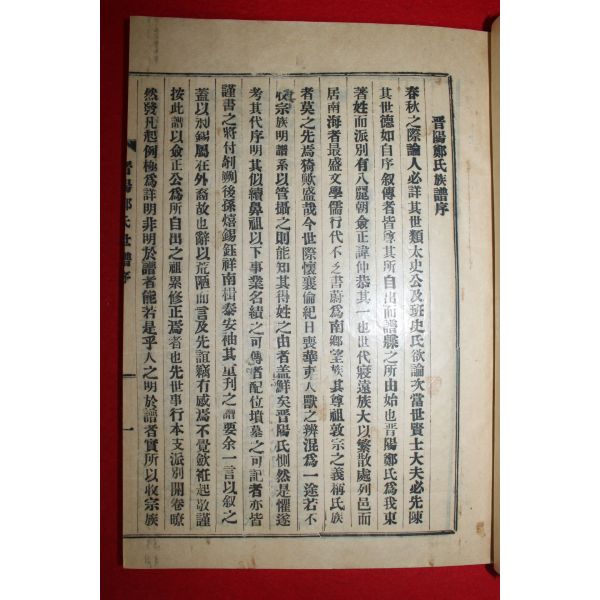 晋陽鄭氏族譜序
春秋之際論人必詳其世類太史公及班史氏欲論次當世賢士大夫必先陳
其世德如自序叙傳者皆尊其所自出而譜牒之所由始也晋陽鄭氏爲我東
著姓而派別有八麗朝僉正諱仲恭其一也世代寖遠族大以繁散處列邑而
居南海者最盛文學儒行代不乏書蔚爲南鄉望族其尊祖敦宗之義稱氏族
者莫之先焉猗歟盛哉今世際懷襄倫紀日喪華夷人獸之辨混爲一途若不
收宗族明譜系以管攝之則能知其得姓之由者盖鮮矣晋陽氏惻然是懼遂
考其代序明其似續鼻祖以下事業名績之可傳者配位墳墓之可記者亦皆
謹書之將付剞劂後孫熺錫鈺祥南楫泰安袖其重刊之譜要余一言以叙之
蓋以錫屬在外裔故也辭以荒陋而言及先誼竊有感焉不覺歛袵起敬謹
按此譜以僉正公爲所自出之祖累修正焉者也先世事行本支派別開卷瞭
然發凡起例極爲詳明非明於譜者能若是乎人之明於譜者實所以收宗族
晋陽鄭氏世譜序
一